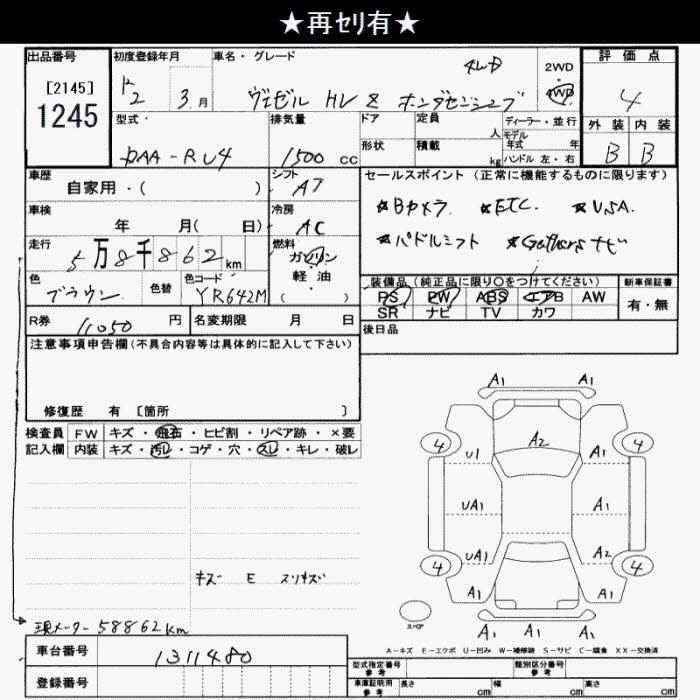 ★再ｾﾘ有★
出品番号
[2145]
1245
初度登録年月
2 3 月
車名・グレード
ヴェゼル HV Z ホンダセンシング
4WD
2WD
4WD
評価点
4
外装 内装
B B
型式
DAA-RU4
排気量
1500 cc
ドア
形状
定員 人
積載 kg
ディーラー・並行
モデル年式 年
ハンドル 左・右
車歴
自家用・( )
シフト
AT
車検
年 月( 日)
冷房
AC
走行
5万8千862km
燃料
ガソリン
軽・油
( )
色
ブラウン
色替
色コード
YR642M
R券
11050 円
名変期限 月 日
セールスポイント (正常に機能するものに限ります)
★Bカメラ. ★ETC. ★VSA.
★パドルシフト ★Gathersナビ
装備品(純正品に限り○をつけてください)
PS PW ABS エアB AW
SR ナビ TV カワ
新車保証書
有・無
後日品
注意事項申告欄(不具合内容等は具体的に記入して下さい)
修復歴 有 〔箇所 〕
検査員記入欄
FW キズ・飛石・ヒビ割・リペア跡・×要
内装 キズ・汚レ・コゲ・穴・スレ・キレ・破レ
キズ E スリキズ
現メーター58862km
A1 A1
4 4
A2
U1 A1
UA1 A1
UA1 A2
4 4
A1 A1
スペア
A1 A1 A1
A-キズ E-エクボ U-凹み W-補修跡 S-サビ C-腐食 XX-交換済
車台番号
1311480
登録番号
型式指定番号
参考
類別区分番号
参考
車庫証明用
参考
長さ cm
幅 cm
高さ cm